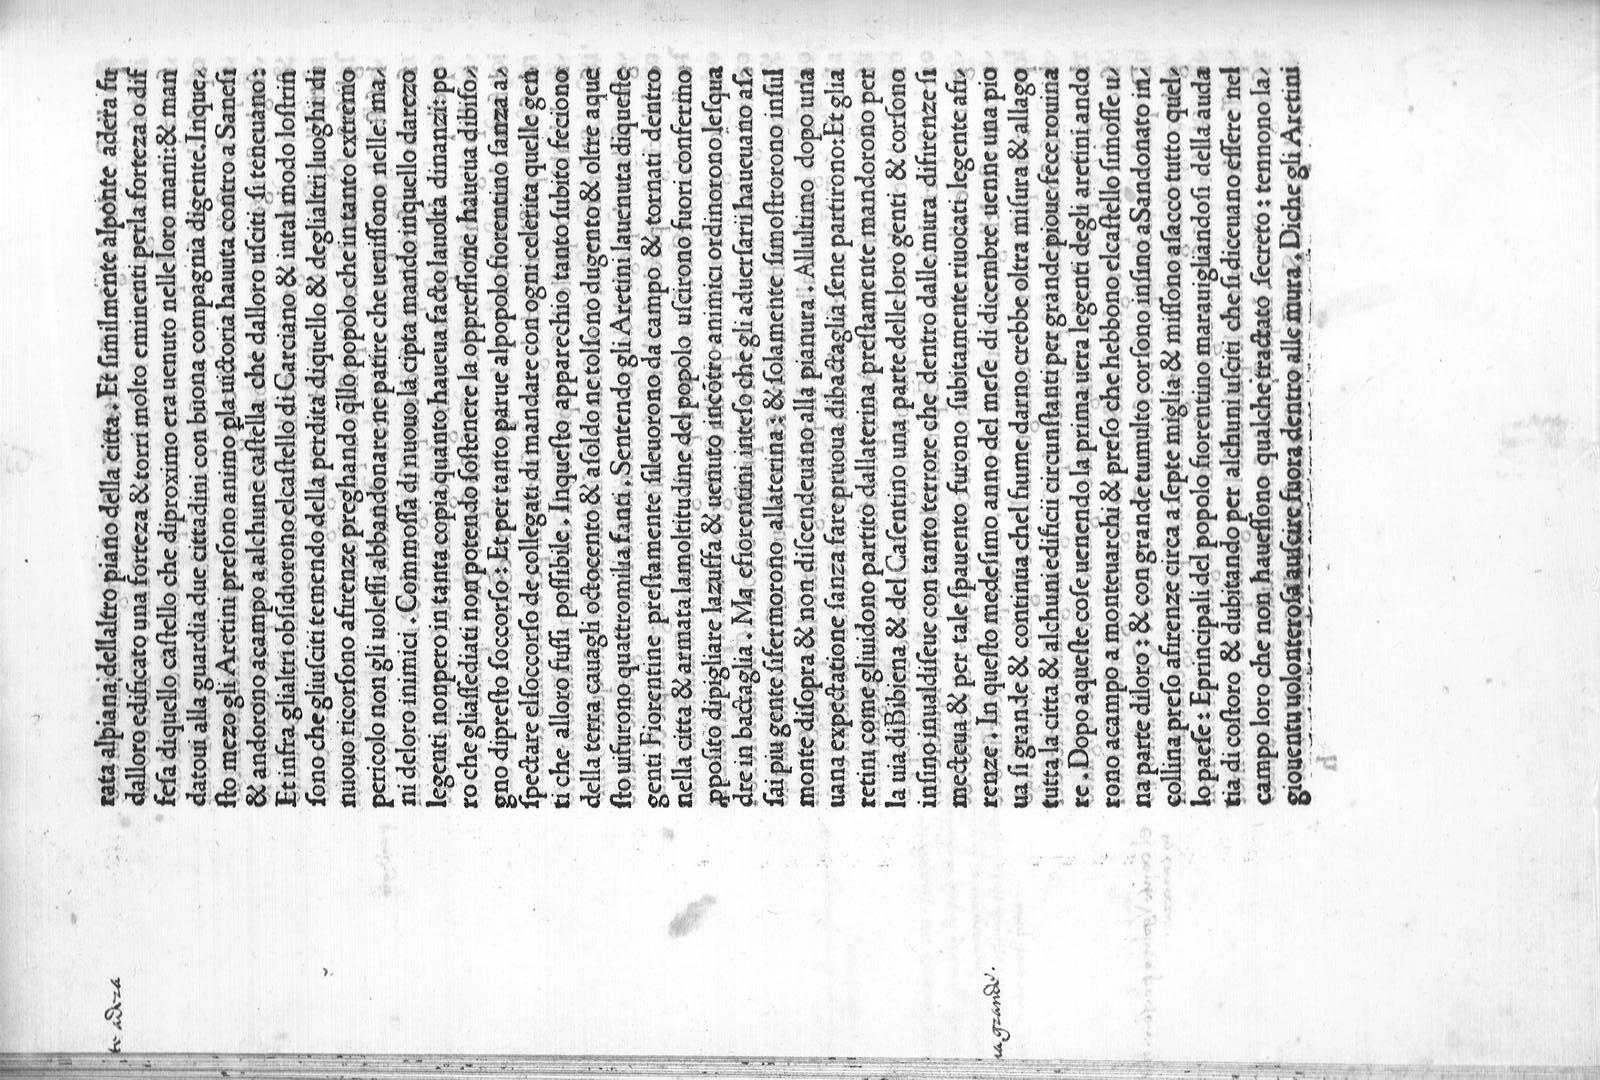 rata alpiana dellaltro piano della citta. Et ſimilmente alponte adera fu
dalloro edificato una forteza & torri molto eminenti perla forteza o dif
feſa diquello caſtello che diproximo era uenuto nelle loro mani: & man
datoui alla guardia due cittadini con buona compagnia digente. Inque⸗
ſto mezo gli Aretini preſono animo ꝑla uictoria hauuta contro a Saneſi
& andorono acampo a alchune caſtella che dalloro uſciti ſi teneuano:
Et infra glialtri obſidorono elcaſtello di Carciano & intal modo loſtrin
ſono che gliuſciti temendo della perdita diquello & deglialtri luoghi di
nuouo ricorſono afirenze preghando q̃llo popolo che in tanto extremo
pericolo non gli uoleſſi abbandonare ne patire che ueniſſono nelle ma⸗
ni deloro inimici. Commoſſa di nuouo la cipta mando inquello darezo
legenti nonpero in tanta copia quanto haueua facto lauolta dinanzi: pe
ro che gliaſſediati non potendo ſoſtenere la oppreſſione haueua dibiſo⸗
gno dipreſto ſoccorſo: Et per tanto parue alpopolo fiorentino ſanza a⸗
ſpectare elſoccorſo de collegati di mandare con ogni celerita quelle gen
ti che alloro fuſſi poſſibile. Inqueſto apparechio tanto ſubito feciono
della terra cauagli octocento & aſoldo ne tolſono dugento & oltre aque
ſto uifurono quattromilia fanti. Sentendo gli Aretini lauenuta diqueſte
genti Fiorentine preſtamente ſileuorono da campo & tornati dentro
nella citta & armata lamoltitudine del popolo uſcirono fuori confermo
ꝓpoſito dipigliare lazuffa & uenuto incõtro animici ordinorono leſqua
dre in bactaglia. Ma efiorentini inteſo che gli aduerſarii haueuano aſ⸗
ſai piu gente ſifermorono allaterina: & ſolamente ſimoſtrorono inſul
monte diſopra & non diſcendeuano alla pianura. Allultimo dopo una
uana expectatione ſanza fare pruoua dibactaglia ſene partirono: Et glia
retini come gliuidono partito dallaterina preſtamente mandorono per
la uia diBibiena & del Caſentino una parte delle loro genti & corſono
inſino inualdiſeue con tanto terrore che dentro dalle mura difirenze ſi
mecteua & per tale ſpauento furono ſubitamente riuocati legente aſu⸗
renze. In queſto medeſimo anno del meſe di dicembre uenne una pio
ua ſi grande & continua chel fiume darno crebbe oltra miſura & allago
tutta la citta & alchuni edificii circunſtanti per grande pioue fece rouina
re. Dopo aqueſte coſe uenendo la prima uera legenti degli aretini ando
rono acampo a monteuarchi & preſo che hebbono elcaſtello ſimoſſe u⸗
na parte diloro: & con grande tumulto corſono inſino aSandonato in⸗
collina preſo afirenze circa a ſepte miglia & miſſono aſacco tutto quel⸗
lo paeſe: Eprincipali del popolo fiorentino marauigliandoſi della auda
tia di coſtoro & dubitando per alchuni uſciti che ſi diceuano eſſere nel
campo loro che non haueſſono qualche tractato ſecreto: tennono la⸗
giouentu uolonteroſa auſcire fuora dentro alle mura. Diche gli Aretini